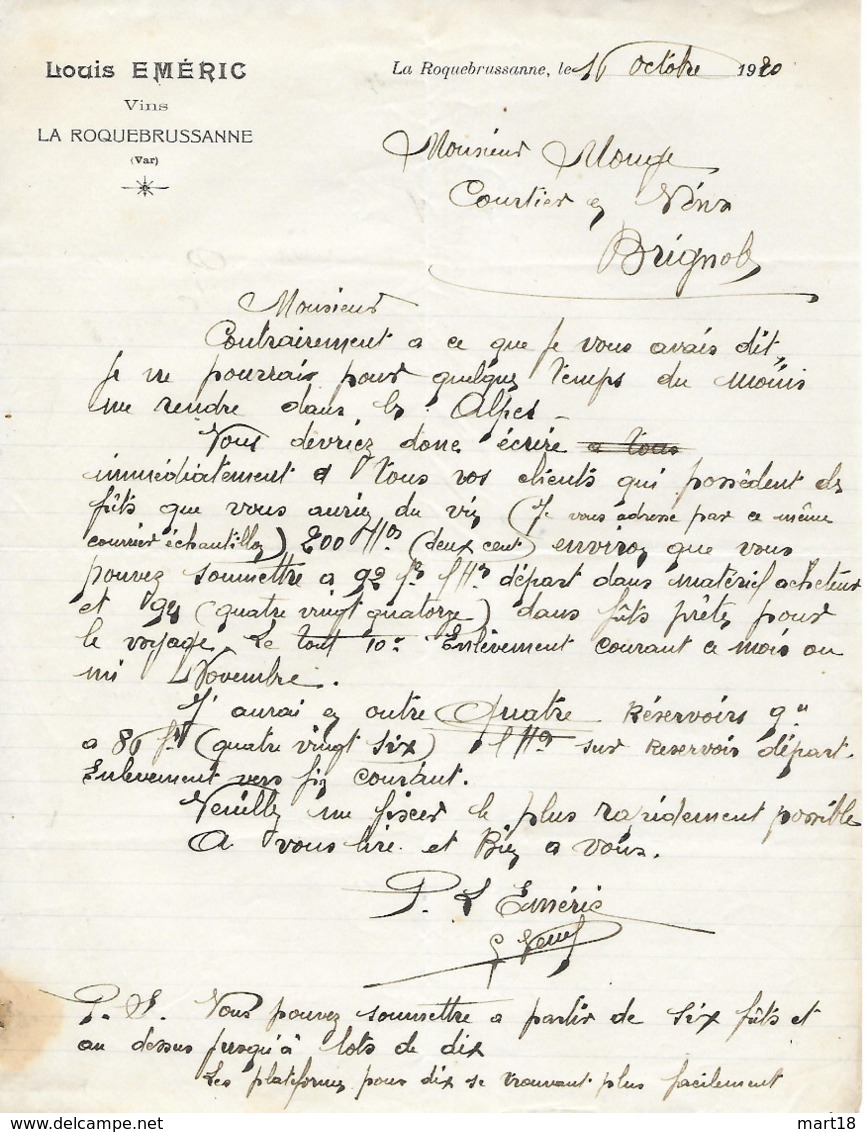 Louis EMÉRIC
Vins
LA ROQUEBRUSSANNE
(Var)
La Roquebrussanne, le 16 Octobre 1920
Monsieur Mouge
Courtier en Vins
Brignoles
Monsieur
Contrairement a ce que je vous avais dit,
je ne pourrais pour quelques temps du moins
me rendre dans les Alpes —
Vous devriez donc écrire a tous
immédiatement a tous vos clients qui possèdent des
fûts que vous auriez du vin (Je vous adresse par ce même
courrier échantillon) 200 Hos (deux cent) environ que vous
pouvez soumettre a 92 frs l'Ho départ dans matériel acheteur
et 94 (quatre vingt quatorze) dans fûts prêtés pour
le voyage. Le tout 10° Enlèvement courant ce mois ou
mi Novembre.
J'aurai en outre Quatre Réservoirs 9°
a 86 frs (quatre vingt six) l'Ho sur Reservoir départ.
Enlevement vers fin courant.
Veuillez me fixer le plus rapidement possible
A vous lire et Bien a vous.
P. L Eméric
P. S. Vous pouvez soumettre a partir de six fûts et
au dessus jusqu'à lots de dix
Les plateformes pour dix se trouvant plus facilement
mart18